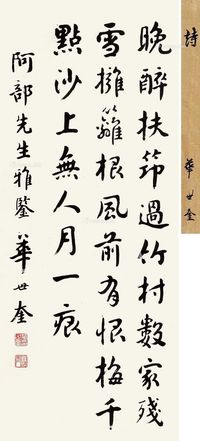 晚醉扶筇過竹村數家殘
雪擁籬根風前有恨梅千
點沙上無人月一痕
阿部先生雅鑒 華世奎
詩
華世奎